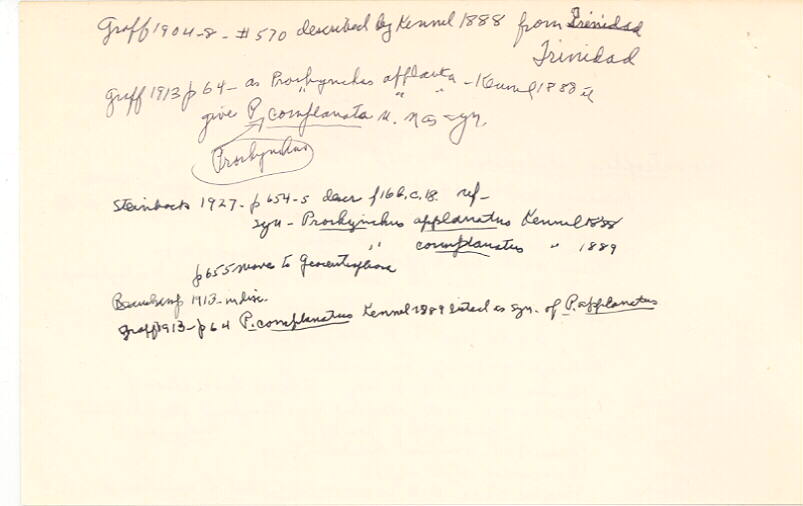 Graff 1904-8 - #570 described by Kennel 1888 from Trinidad
Trinidad
Graff 1913 p 64 - as Prorhynchus applanata - Kennel 1888
" " "
give P. complanata n. nas - syn.
Prorhynchus
Steinbock 1927 - p 654-5 descr f 16 b, c, 18. ref -
syn - Prorhynchus applanatus Kennel 1888
" complanatus " 1889
p 655 moves to Geocentrophora
Beauchamp 1913 -
Graff 1913 - p 64 P. complanatus Kennel 1889 listed as syn. of P. applanatus